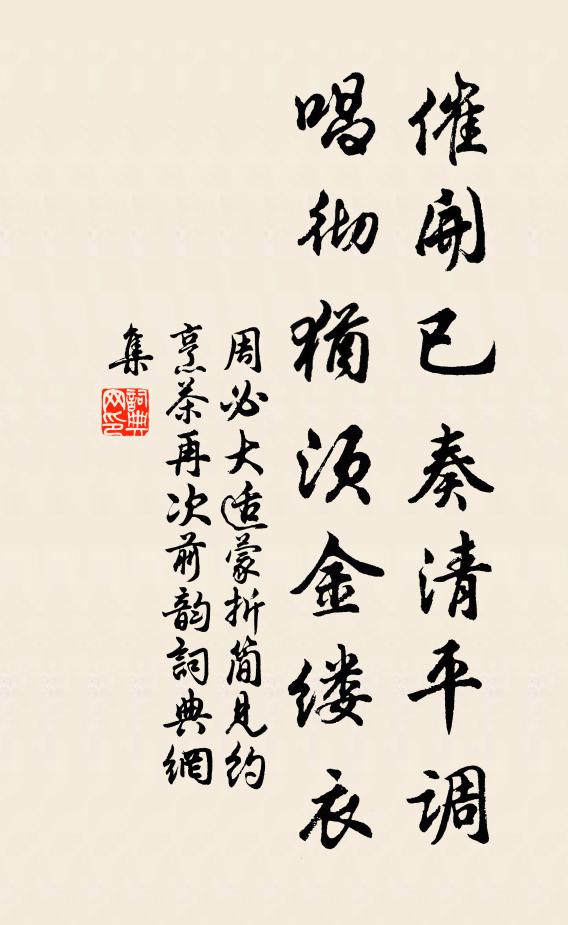 催開已奏清平调
唱彻猶须金缕衣
周必大适蒙折简见约
烹茶再次前韵詞典網
集
詞典网印